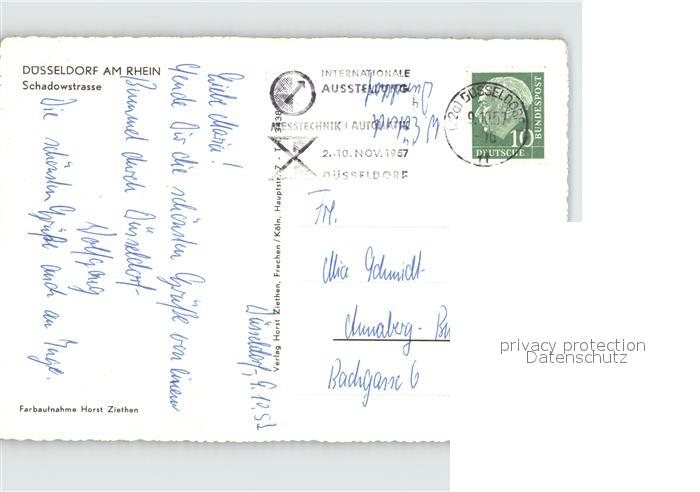 DÜSSELDORF AM RHEIN
Schadowstrasse
Liebe Maria!
Sende Dir die schönsten Grüße von einem
Bummel durch Düsseldorf.
Wolfgang
Die schönsten Grüße auch an Inge.
Düsseldorf, 9.10.57
Farbaufnahme Horst Ziethen
Verlag Horst Ziethen, Frechen/Köln, Hauptstr.
INTERNATIONALE
AUSSTELLUNG
MESSTECHNIK + AUTOMATIK
2.-10. NOV. 1957
DÜSSELDORF
DÜSSELDORF
9.10.57
10
DEUTSCHE
BUNDESPOST
Frl.
Schmidt
Annaberg-
Bachgasse 6
privacy protection
Datenschutz